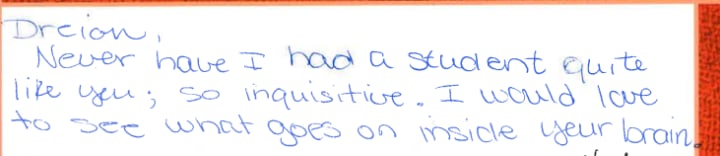 Dreion,
Never have I had a student quite
like you; so inquisitive. I would love
to see what goes on inside your brain.